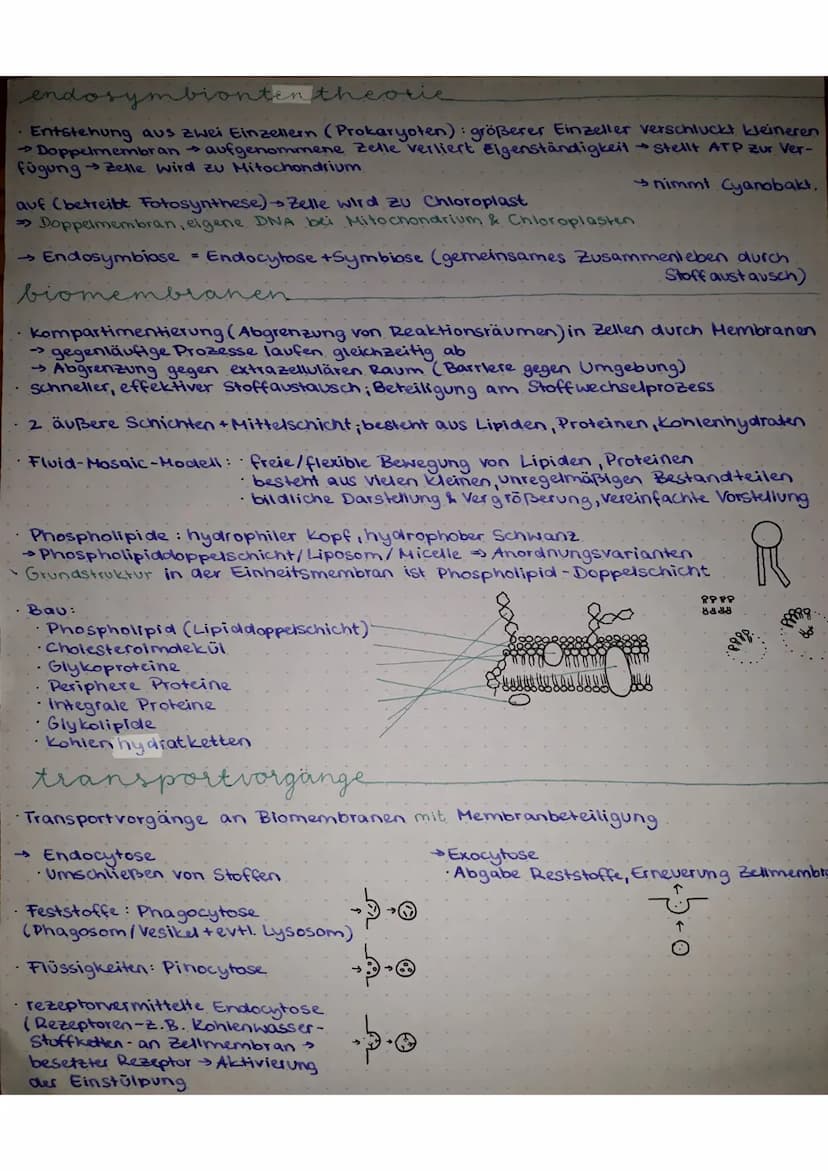 endosymbionten theorie
· Entstehung aus zwei Einzellern (Prokaryoten): größerer Einzeller verschluckt kleineren
→ Doppelmembran → aufgenommene Zelle verliert Eigenständigkeit → stellt ATP zur Ver-
fügung → Zelle wird zu Mitochondrium
→ nimmt Cyanobakt.
auf (betreibt Fotosynthese) → Zelle wird zu Chloroplast
⇒ Doppelmembran, eigene DNA bei Mitochondrium & Chloroplasten
→ Endosymbiose = Endocytose + Symbiose (gemeinsames Zusammenleben durch
Stoffaustausch)
biomembranen
· Kompartimentierung (Abgrenzung von Reaktionsräumen) in Zellen durch Membranen
→ gegenläufige Prozesse laufen gleichzeitig ab
→ Abgrenzung gegen extrazellulären Raum (Barriere gegen Umgebung)
· schneller, effektiver Stoffaustausch; Beteiligung am Stoffwechselprozess
· 2 äußere Schichten + Mittelschicht; besteht aus Lipiden, Proteinen, Kohlenhydraten
· Fluid-Mosaic-Modell: · freie/flexible Bewegung von Lipiden, Proteinen
· besteht aus vielen kleinen, unregelmäßigen Bestandteilen
· bildliche Darstellung & Vergrößerung, vereinfachte Vorstellung
· Phospholipide: hydrophiler Kopf, hydrophober Schwanz
→ Phospholipiddoppelschicht/Liposom/Micelle ⇒ Anordnungsvarianten
Grundstruktur in der Einheitsmembran ist Phospholipid-Doppelschicht
· Bau:
· Phospholipid (Lipiddoppelschicht)
· Cholesterolmolekül
· Glykoproteine
· Periphere Proteine
· Integrale Proteine
· Glykolipide
· Kohlenhydratketten
transportvorgänge
· Transportvorgänge an Biomembranen mit Membranbeteiligung
→ Endocytose
· Umschließen von Stoffen
→ Exocytose
· Abgabe Reststoffe, Erneuerung Zellmembr
· Feststoffe: Phagocytose
(Phagosom/Vesikel + evtl. Lysosom)
· Flüssigkeiten: Pinocytose
· rezeptorvermittelte Endocytose
(Rezeptoren - z.B. Kohlenwasser-
stoffketten - an Zellmembran →
besetzter Rezeptor → Aktivierung
der Einstülpung